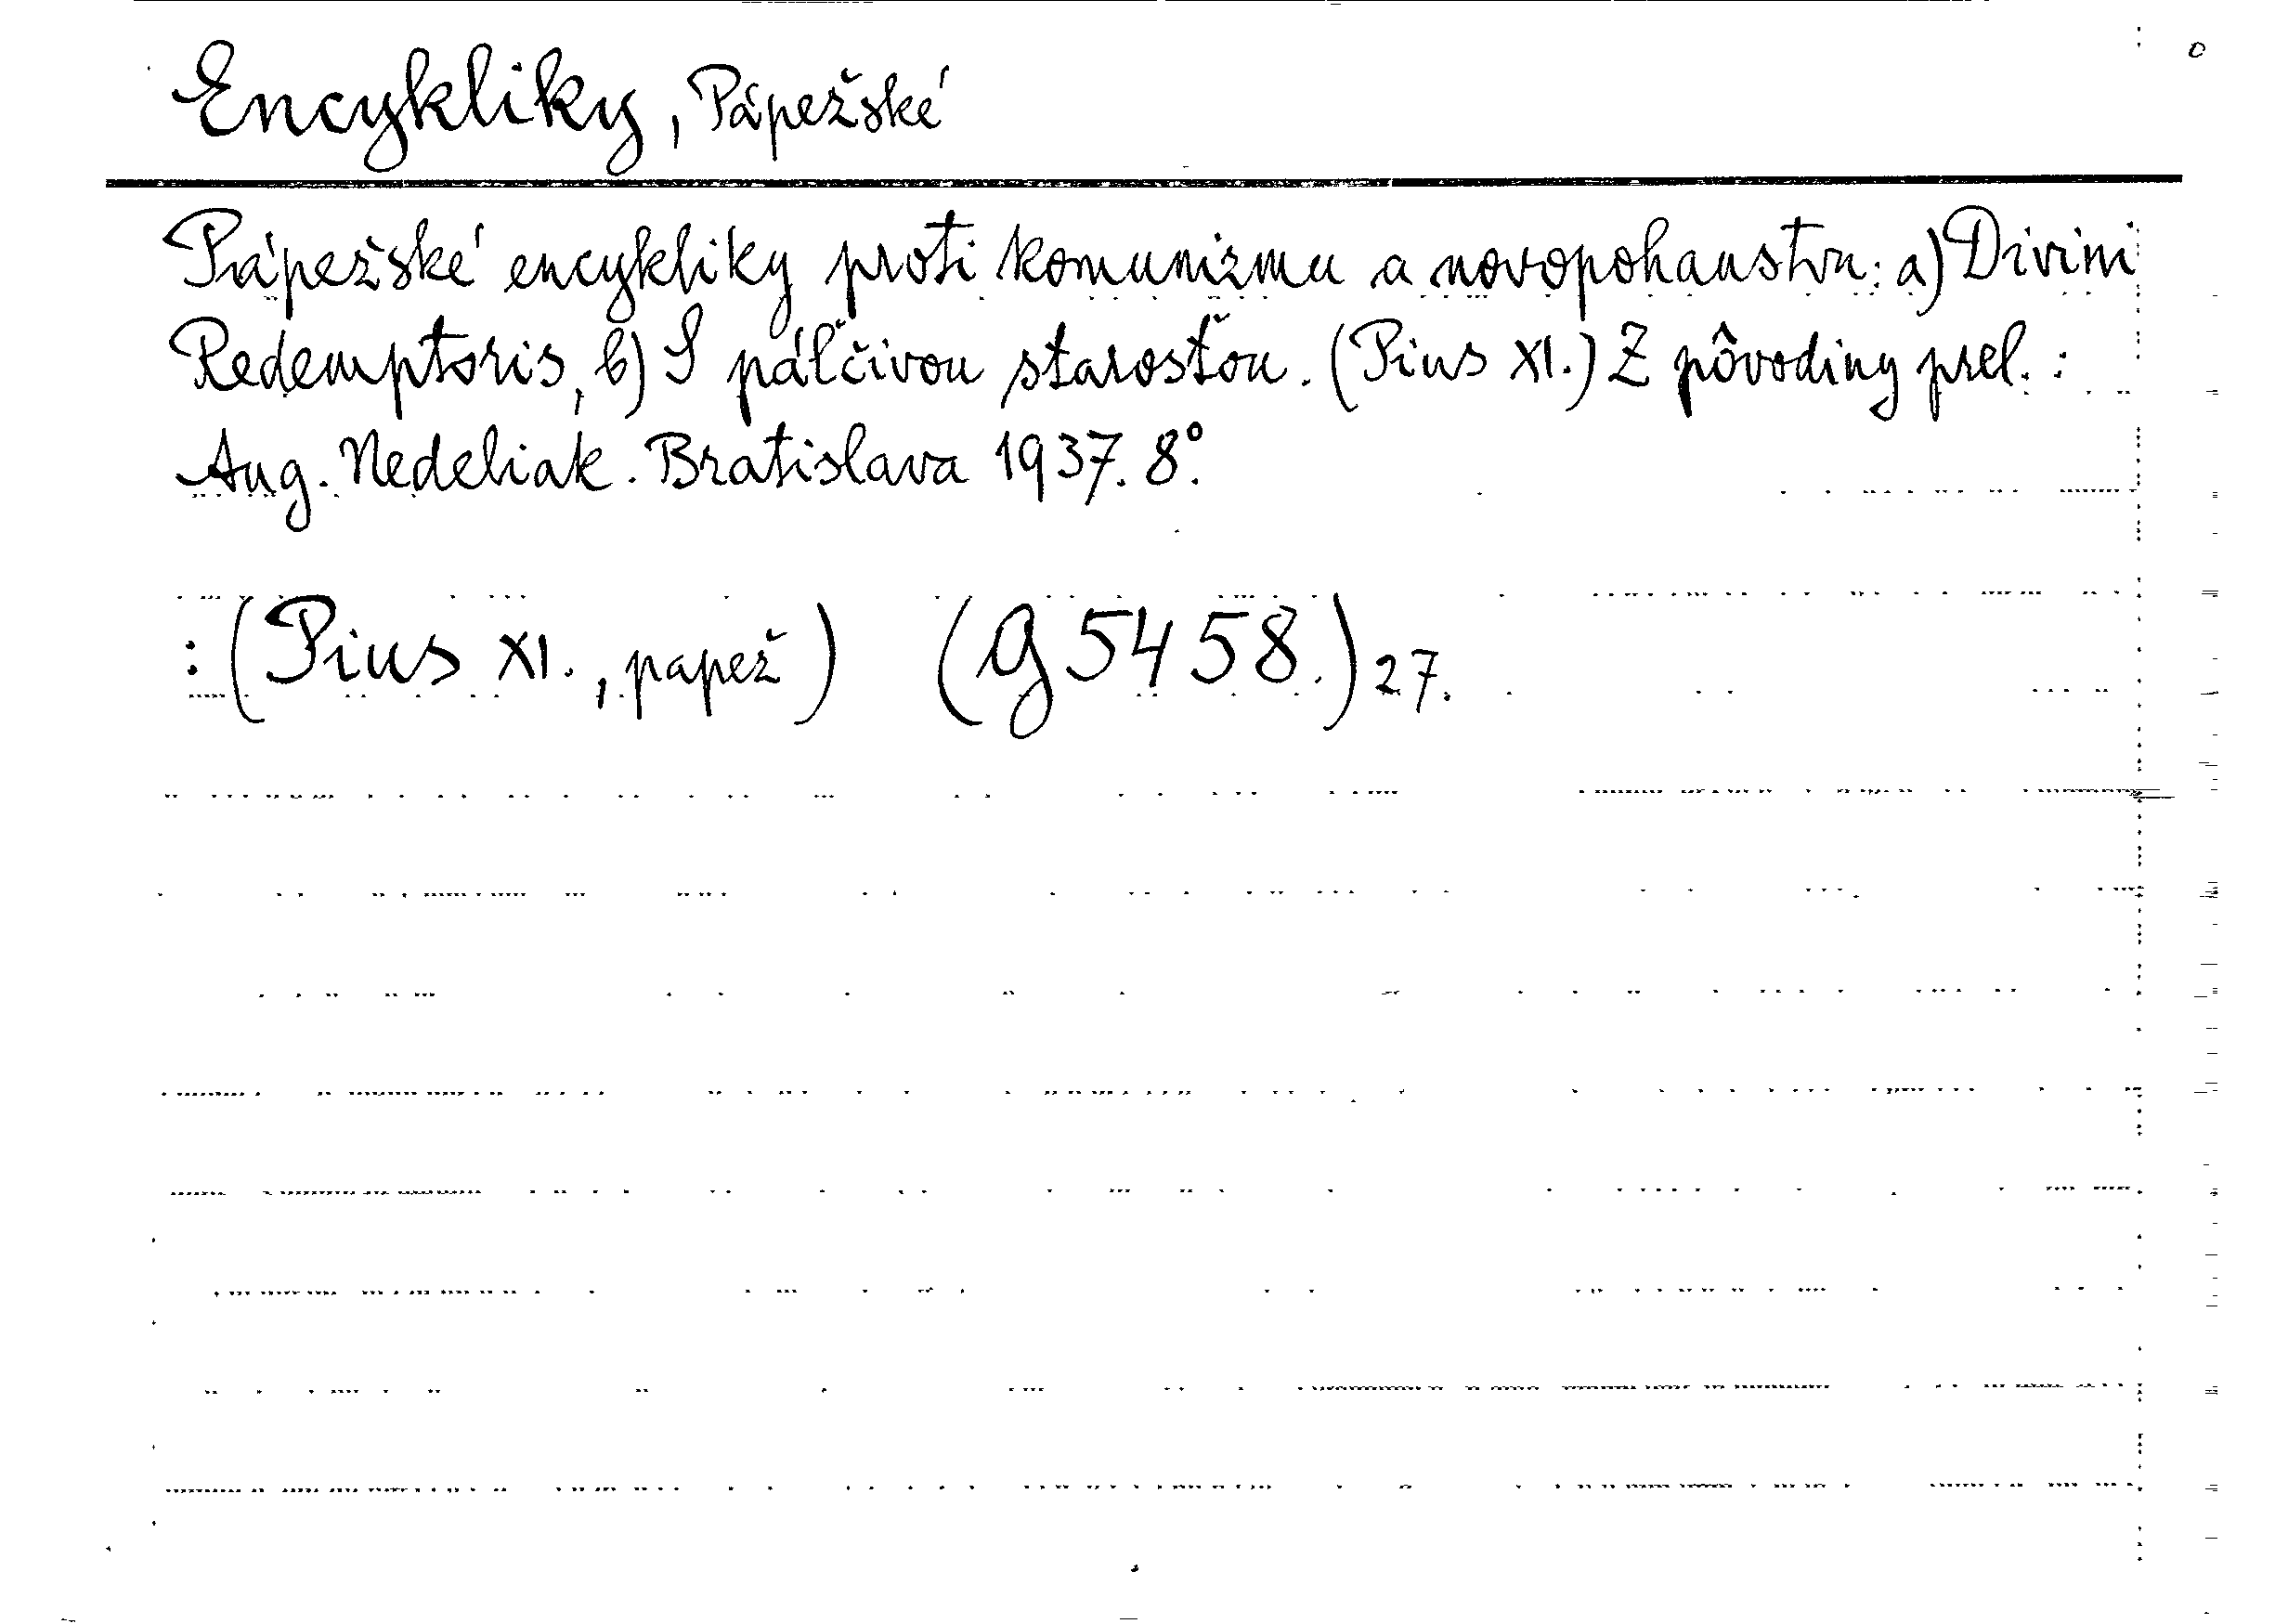 Encykliky, Pápežské
Pápežské encykliky proti komunizmu a novopohanstvu: a) Divini
Redemptoris, b) S páľčivou starosťou. (Pius XI.) Z pôvodiny prel.:
Aug. Nedeliak. Bratislava 1937. 8°.
: (Pius XI., papež) (G 5458.) 27.